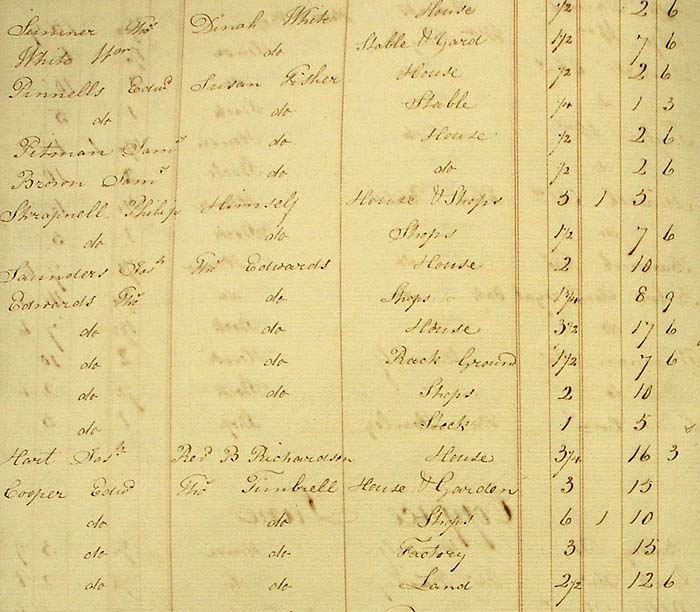 Sumner Thos Dinah White House 1/2 2 6
White Wm do Stable & Yard 1 1/2 7 6
Pinnells Edwd Susan Fisher House 1/2 2 6
do do Stable 1/4 1 3
Pitman Saml do House 1/2 2 6
Brown Saml do do 1/2 2 6
Shrapnell Philip Himself House & Shops 5 1 5
do do Shops 1 1/2 7 6
Saunders Josh Thos Edwards House 2 10
Edwards Thos do Shops 1 3/4 8 9
do do House 3 1/2 17 6
do do Rack Ground 1 1/2 7 6
do do Shops 2 10
do do Stock 1 5
Hart Josh Revd B Richardson House 3 1/4 16 3
Cooper Edwd Thos Timbrell House & Garden 3 15
do do Shops 6 1 10
do do Factory 3 15
do do Land 2 1/2 12 6